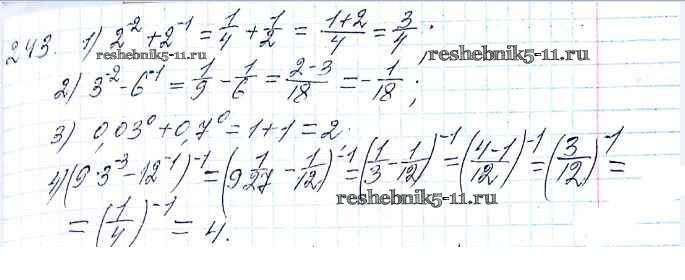 243. 1) 2^-2 + 2^-1 = 1/4 + 1/2 = (1+2)/4 = 3/4.
reshebnik5-11.ru
reshebnik5-11.ru
2) 3^-2 - 6^-1 = 1/9 - 1/6 = (2-3)/18 = -1/18;
3) 0,03^0 + 0,7^0 = 1+1 = 2
4) (9·3^-3 - 12^-1)^-1 = (9 1/27 - 1/12)^-1 = (1/3 - 1/12)^-1 = ((4-1)/12)^-1 = (3/12)^-1 =
reshebnik5-11.ru
= (1/4)^-1 = 4.